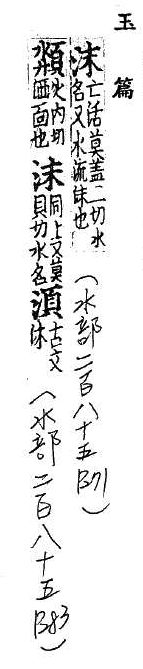 玉篇
沫 亡活莫盖二切水
名又水流沫也
(水部二百八十五 B71)
頮 火內切
洒面也
沬 同上又莫
貝切水名
湏 古文
沬
(水部二百八十五 B83)